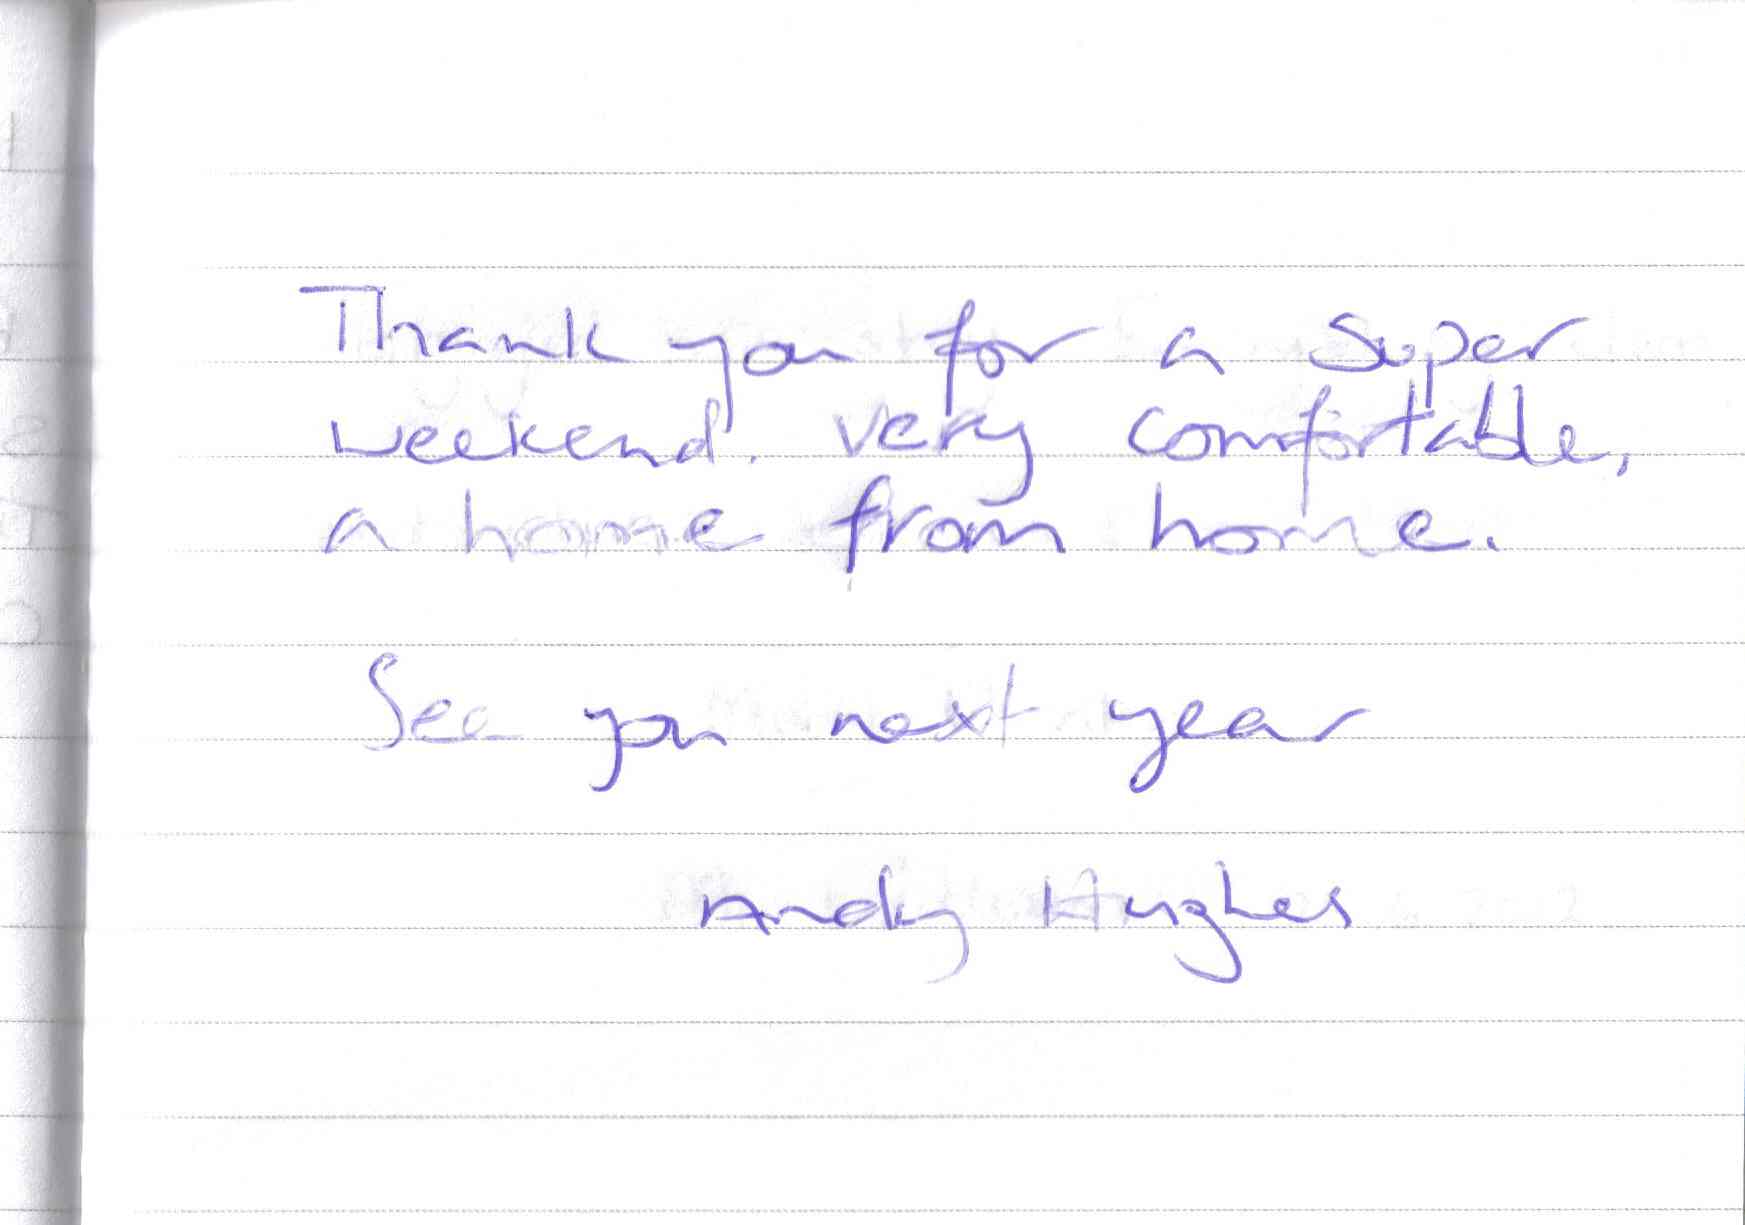 Thank you for a super
weekend. very comfortable,
a home from home.
See you next year
Andy Hughes